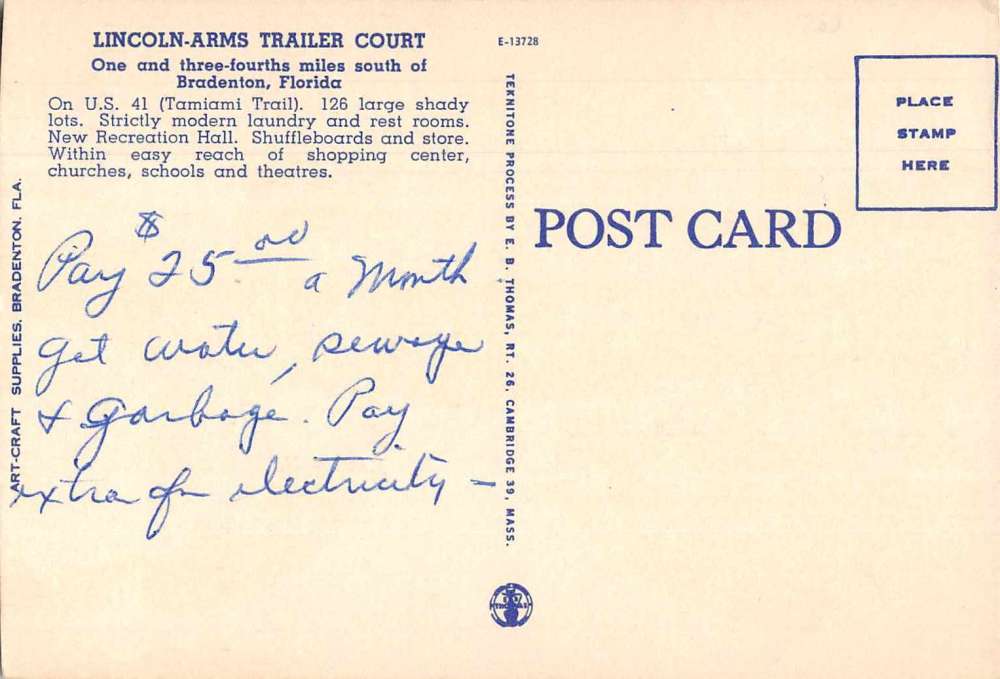 LINCOLN-ARMS TRAILER COURT
One and three-fourths miles south of
Bradenton, Florida
On U.S. 41 (Tamiami Trail). 126 large shady
lots. Strictly modern laundry and rest rooms.
New Recreation Hall. Shuffleboards and store.
Within easy reach of shopping center,
churches, schools and theatres.
ART-CRAFT SUPPLIES. BRADENTON. FLA.
Pay $25.00 a Month
get water, sewage
& Garbage. Pay
extra for electricity –
E-13728
TEKNITONE PROCESS BY E. B. THOMAS, RT. 26, CAMBRIDGE 39, MASS.
POST CARD
PLACE
STAMP
HERE